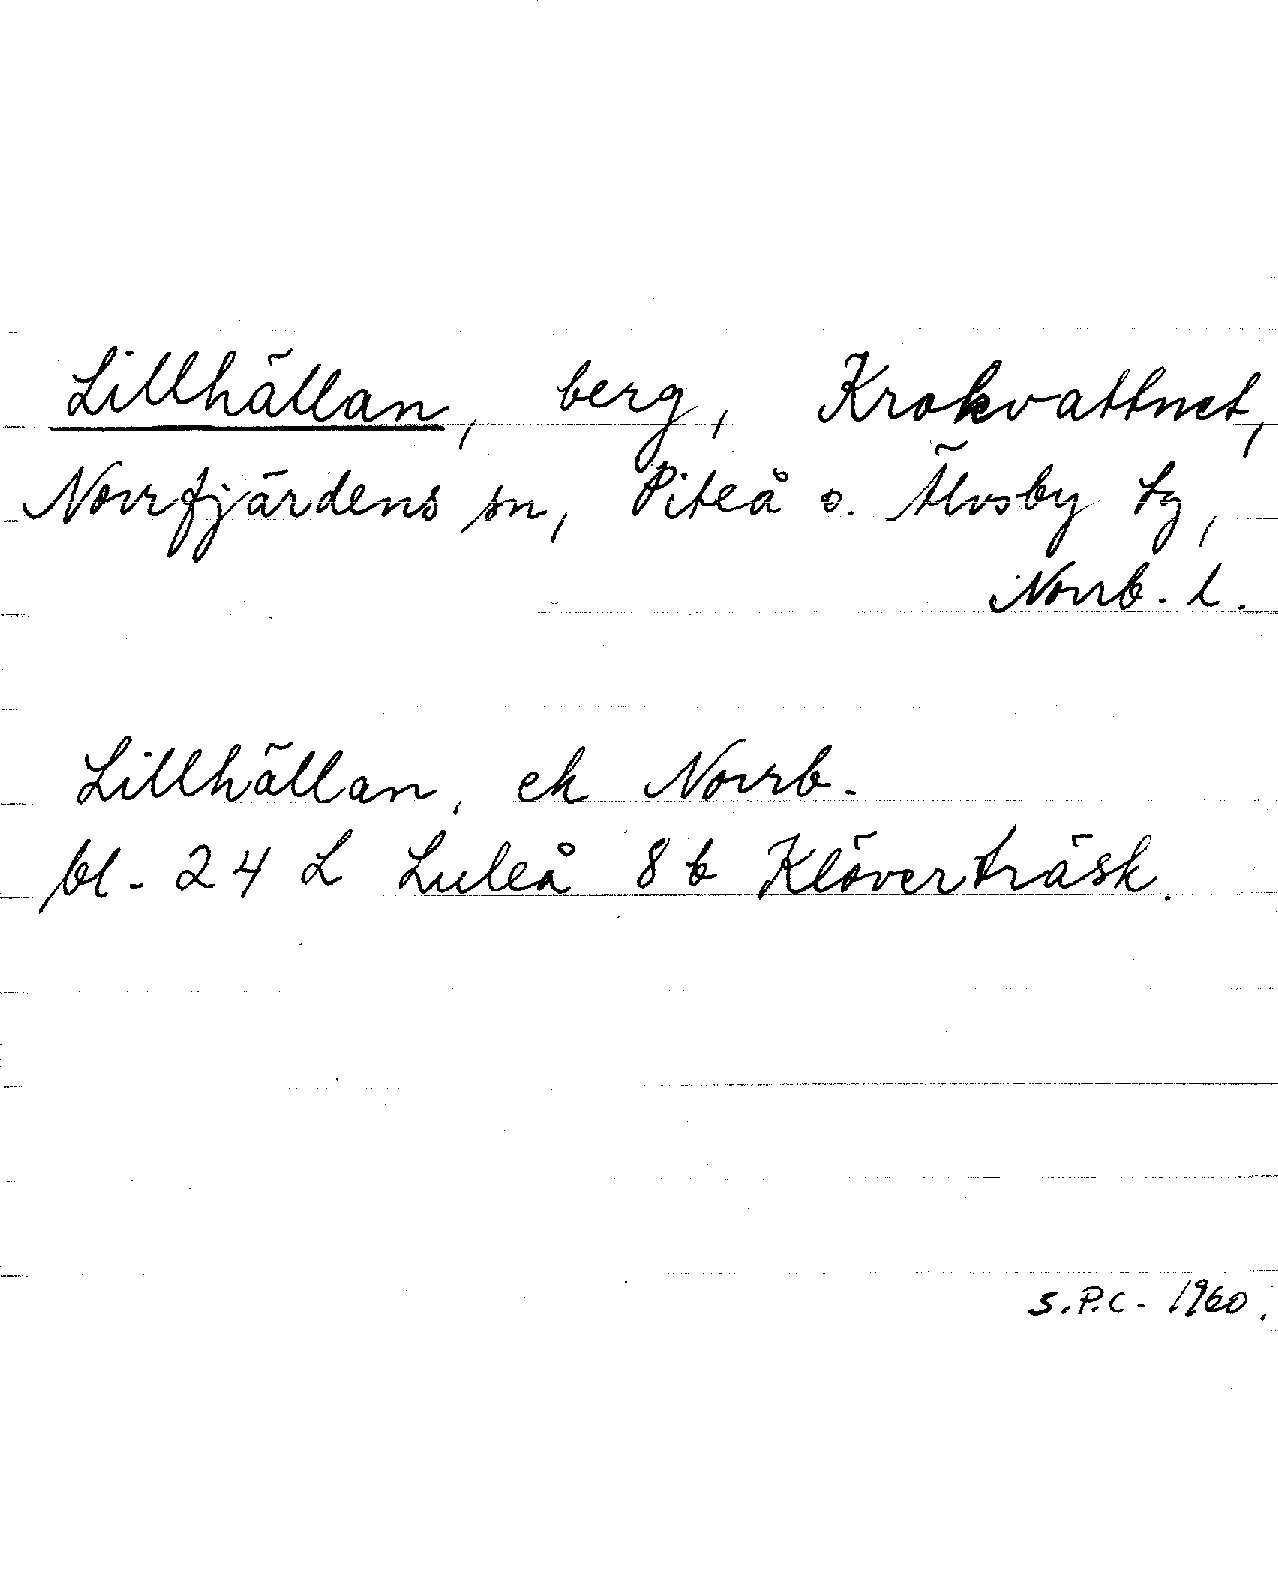 Lillhällan, berg, Krokvattnet,
Norrfjärdens sn, Piteå o. Älvsby tg,
Norrb. l.
Lillhällan, ek Norrb.
bl. 24 L Luleå 8 b Klöverträsk.
S.P.C. 1960.